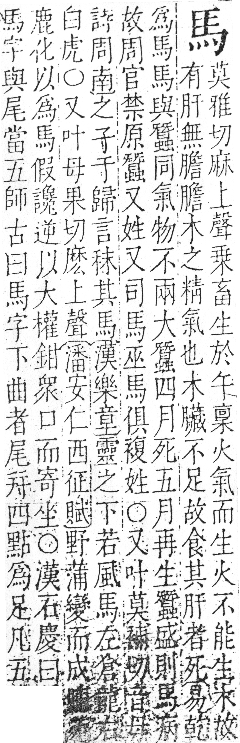 馬
莫雅切麻上聲乘畜生於午稟火氣而生火不能生木故
有肝無膽膽木之精氣也木臟不足故食其肝者死易乾
爲馬馬與蠶同氣物不兩大蠶四月死五月再生蠶盛則馬病
故周官禁原蠶又姓又司馬巫馬俱複姓○又叶莫補切音母
詩周南之子于歸言秣其馬漢樂章靈之下若風馬左倉龍右
白虎○又叶母果切麽上聲潘安仁西征賦野蒲變而成
鹿化以爲馬假讒逆以大權鉗衆口而寄坐○漢石慶曰
馬字與尾當五師古曰馬字下曲者尾并四點爲足凡五